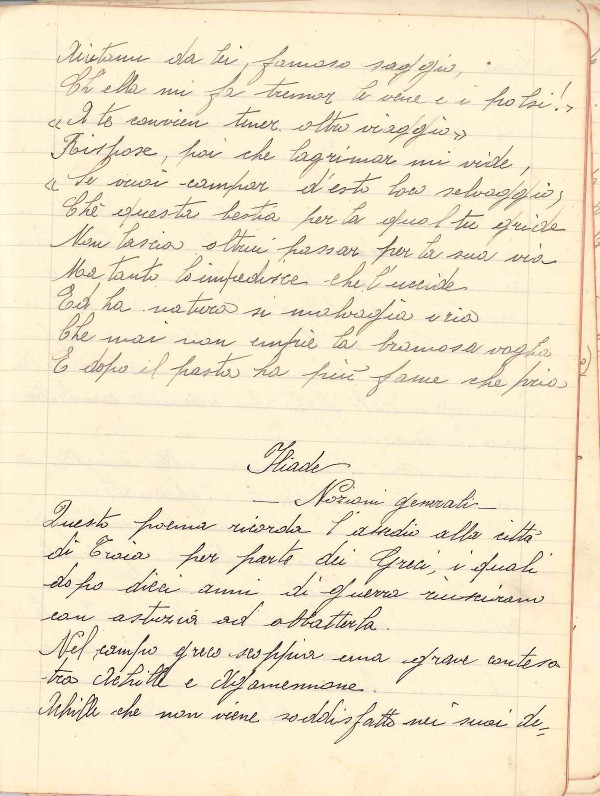 Aiutami da lei, famoso saggio,
Ch'ella mi fa tremar le vene e i polsi!»
«A te convien tener oltro viaggio»
Rispose, poi che lagrimar mi vide,
«Se vuoi campar d'esto loco selvaggio;
Chè questa bestia per la qual tu gride
Non lascia altrui passar per la sua via
Ma tanto lo impedisce che l'uccide
Ed ha natura si malvagia e ria
Che mai non empie la bramosa voglia
E dopo il pasto ha più fame che pria
Iliade
— Nozioni generali —
Questo poema ricorda l'assedio alla città
di Troia per parte dei Greci, i quali
dopo dieci anni di guerra riuscirono
con astuzia ad abbatterla.
Nel campo greco scoppia una grave contesa
tra Achille e Agamennone.
Achille che non viene soddisfatto nei suoi de=